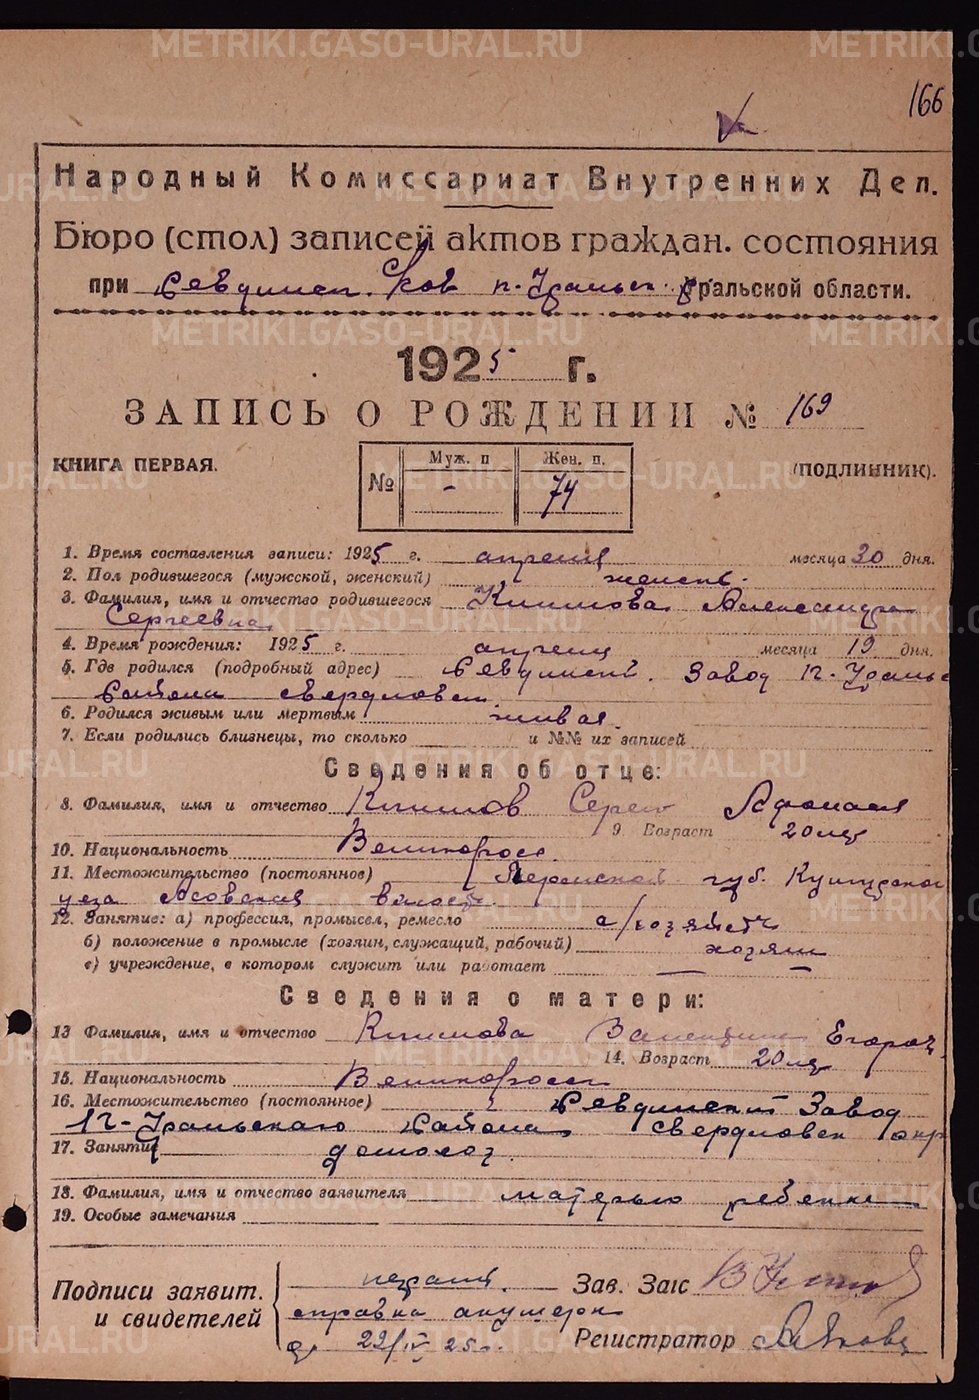 METRIKI.GASO-URAL.RU
166
Народный Комиссариат Внутренних Дел.
Бюро (стол) записей актов граждан. состояния
при Ревдинск. п-Уральск. р Уральской области.
1925 г.
ЗАПИСЬ О РОЖДЕНИИ № 169
КНИГА ПЕРВАЯ. (ПОДЛИННИК).
№ Муж. п - Жен. п. 74
1. Время составления записи: 1925 г. апреля месяца 30 дня.
2. Пол родившегося (мужской, женский) женск.
3. Фамилия, имя и отчество родившегося Климова Александра
Сергеевна
4. Время рождения: 1925 г. апреля месяца 19 дня.
5. Где родился (подробный адрес) Ревдинск. Завод П-Уральс
Района свердловск.
6. Родился живым или мертвым живая.
7. Если родились близнецы, то сколько и №№ их записей
Сведения об отце:
8. Фамилия, имя и отчество Климов Серге Афонася
9. Возраст 20 лет
10. Национальность Великоросс.
11. Местожительство (постоянное) Пермской губ. Кунгурской
уезд Асовская волость.
12. Занятие: а) профессия, промысел, ремесло с/хозяйств
б) положение в промысле (хозяин, служащий, рабочий) хозяин
в) учреждение, в котором служит или работает — —
Сведения о матери:
13 Фамилия, имя и отчество Климова Валентина Егоров.
14. Возраст 20 лет
15. Национальность Великоросска
16. Местожительство (постоянное) Ревдинский Завод
П-Уральскаго Района свердловск окр
17. Занятие домохоз.
18. Фамилия, имя и отчество заявителя матерью ребенка
19. Особые замечания
Подписи заявит. и свидетелей
справка акушерк
от 22/IV 25 г.
Зав. Загс
Регистратор